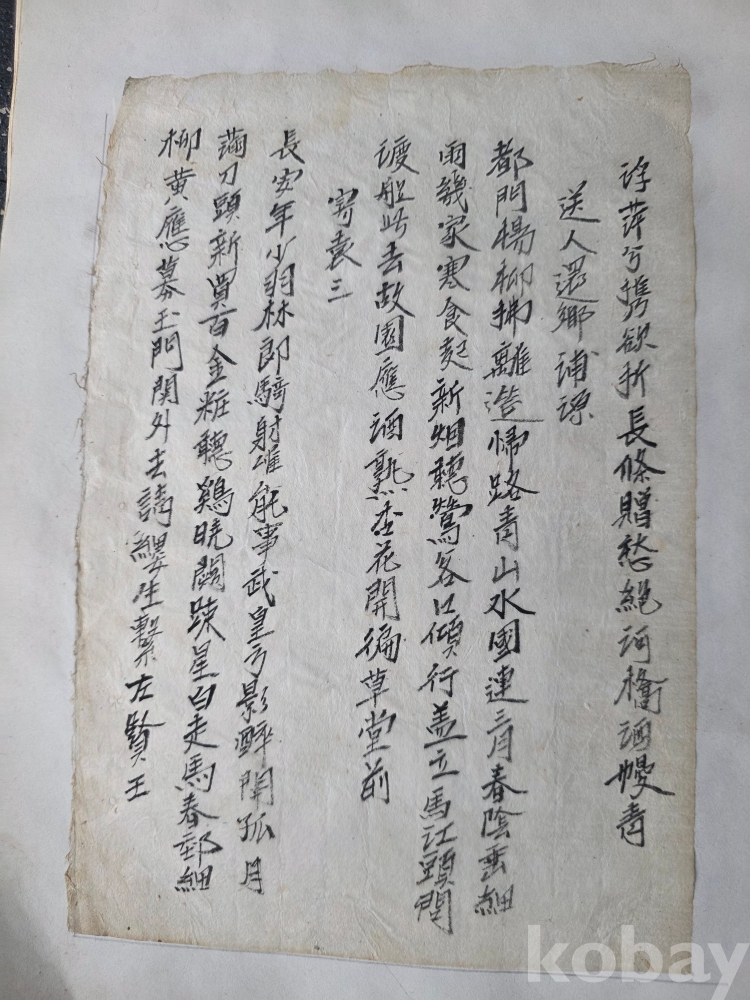 萍兮携欲折長條贈愁絕河橋酒幔青
送人還鄉浦源
都門楊柳拂離筵歸路青山水國連三月春陰垂細
雨幾家寒食起新烟聽鶯客口傾行盖立馬江頭問
渡船此去故園應酒熟杏花開徧草堂前
寄袁三
長安年少羽林郎騎射雄能事武皇弓影醉開孤月
滿刀頭新買百金粧聽鷄曉闕踈星白走馬春郊細
柳黃應募玉門関外去請纓生繫左賢王
kobay